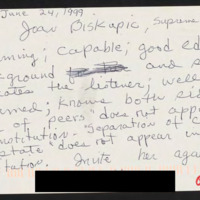 June 24, 1999
Joan Biskupic, Supreme
ming; capable; good ed
ground and s
ates the listener; well
rmed; knows both si
of peers" does not appea
nstitution. "Separation of C
state" does not appear in
tution. Invite her aga